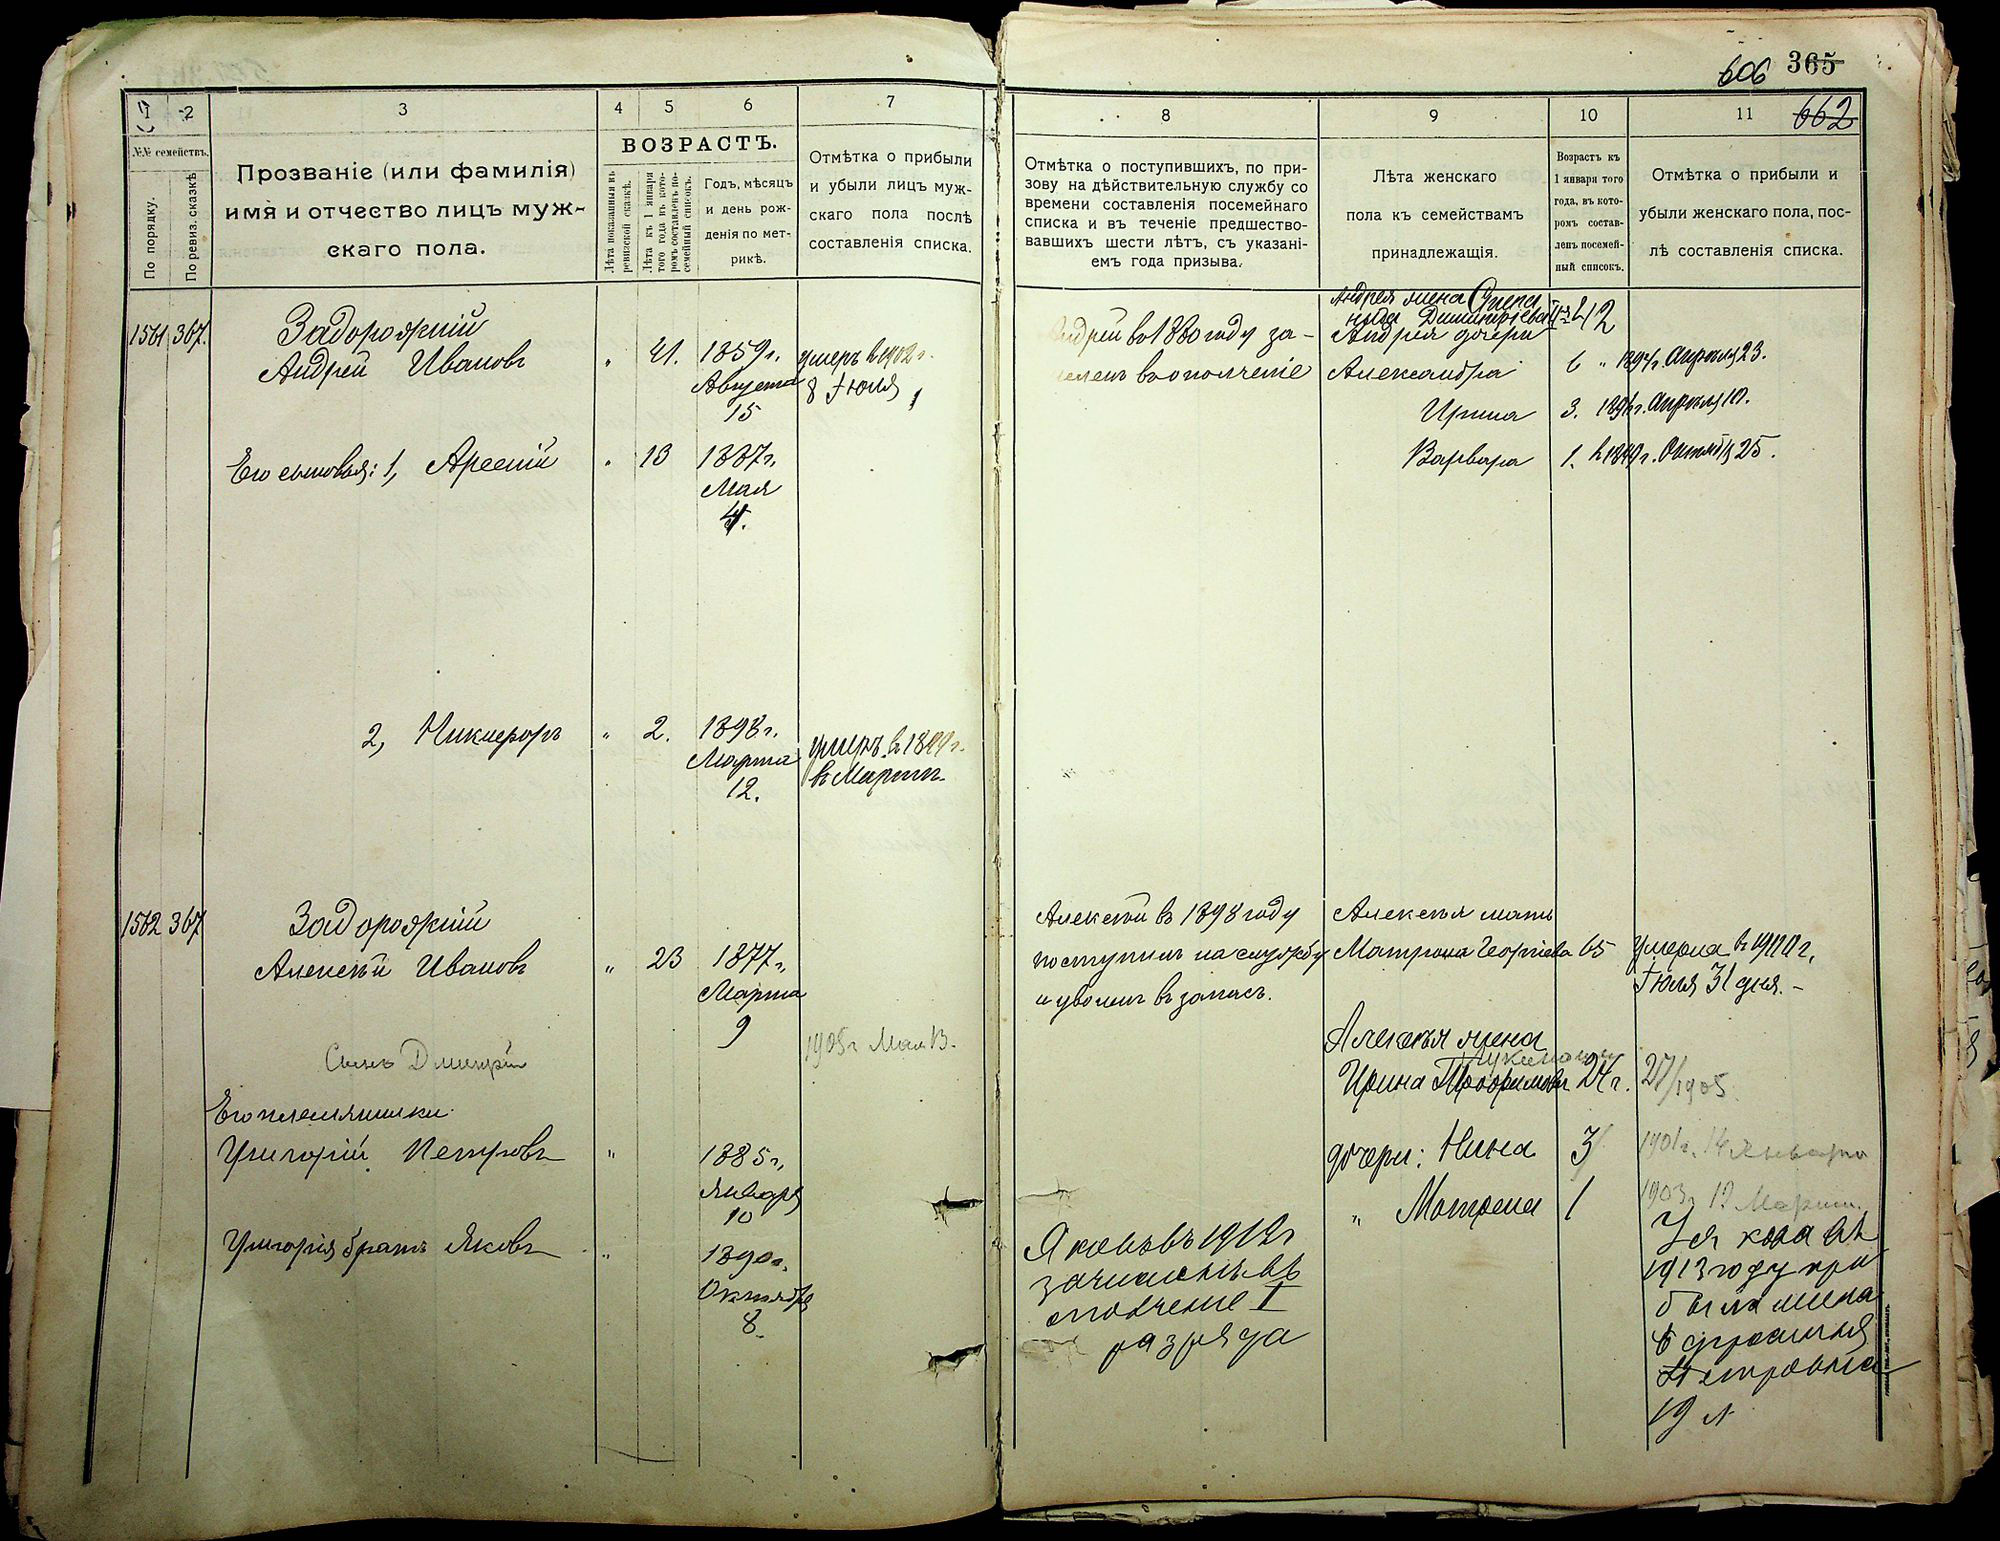 606 365
662
1 2 3 4 5 6 7
8 9 10 11
№№ семействъ.
По порядку.
По ревиз. сказкѣ
Прозваніе (или фамилія)
имя и отчество лицъ муж-
скаго пола.
ВОЗРАСТЪ.
Лѣта показанныя въ
ревизской сказкѣ.
Лѣта къ 1 января
того года въ кото-
ромъ составленъ по-
семейный списокъ.
Годъ, мѣсяцъ
и день рож-
денія по мет-
рикѣ.
Отмѣтка о прибыли
и убыли лицъ муж-
скаго пола послѣ
составленія списка.
Отмѣтка о поступившихъ, по при-
зову на дѣйствительную службу со
времени составленія посемейнаго
списка и въ теченіе предшество-
вавшихъ шести лѣтъ, съ указані-
емъ года призыва.
Лѣта женскаго
пола къ семействамъ
принадлежащія.
Возрастъ къ
1 января того
года, въ кото-
ромъ состав-
ленъ посемей-
ный списокъ.
Отмѣтка о прибыли и
убыли женскаго пола, пос-
лѣ составленія списка.
1561 367. Задорожній
Андрей Ивановъ " 41. 1859 г.
Августа
15
умеръ в 1902 г.
8 Іюля
Андрей въ 1880 году за-
численъ въ ополченіе
Андрея жена Степа
нида Димитріева 42
Андрея дочери
Александра 6 " 1894 г. Апрѣля 23.
Ирина 3. 1896 г. Апрѣля 10.
Варвара 1. в 1899 г. Октября 25.
Его сыновья: 1, Арсеній " 13 1887 г.
Мая
4.
2, Никифоръ " 2. 1898 г.
Марта
12.
умеръ в 1899 г.
въ Мартѣ.
1562 367 Задорожній
Алексѣй Ивановъ " 23 1877 г.
Марта
9
Алексѣй въ 1898 году
поступилъ на службу
и уволенъ въ запасъ.
Алексѣя мать
Матрона Георгіева 65 Умерла в 1900 г.
Іюля 31 дня. –
Сынъ Дмитрій 1905 г Мая 13.
Алексѣя жена
Лукинова
Ирина Трофимова 24 г. 27/1905.
Его племянники
Григорій Петровъ " 1885 г.
Января
10
дочери: Нина 3 1901 г. 14 Января
" Матрена 1 1903 г. 19 Марта.
Григорія братъ Яковъ " 1890 г.
Октября
8.
Яковъ въ 1912 г
зачисленъ въ
ополченіе I
разряда
У Якова въ
1913 году при
была жена
Ефросинія
Петровна
19 л